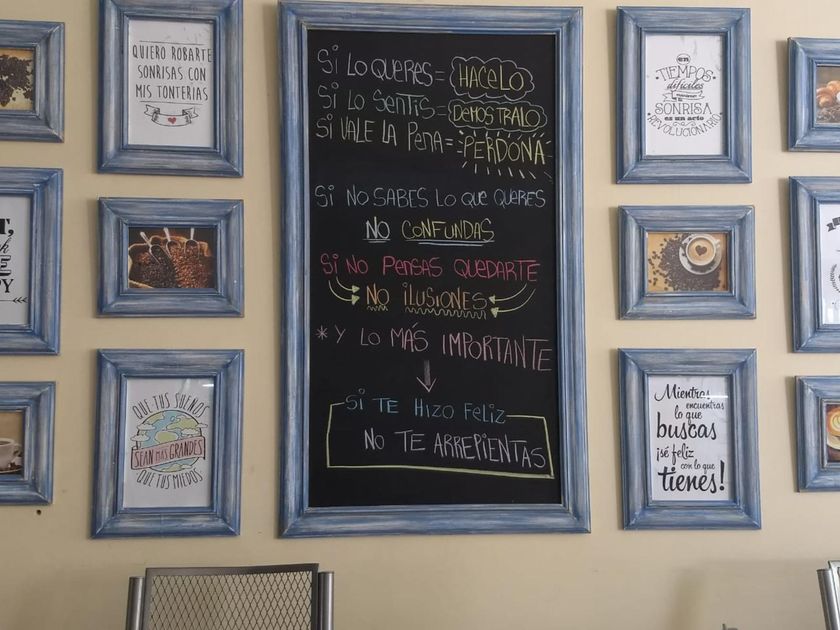 QUIERO ROBARTE
SONRISAS CON
MIS TONTERÍAS
QUE TUS SUEÑOS
SEAN MÁS GRANDES
QUE TUS MIEDOS
SI LO QUERES = HACELO
SI LO SENTIS = DEMOSTRALO
SI VALE LA PENA = PERDONÁ
SI NO SABES LO QUE QUERES
NO CONFUNDAS
SI NO PENSAS QUEDARTE
NO ILUSIONES
* Y LO MÁS IMPORTANTE
SI TE HIZO FELIZ
NO TE ARREPIENTAS
en
TIEMPOS
difíciles
SONRISA
es un acto
REVOLUCIONARIO
Mientras
encuentras
lo que
buscas
¡sé feliz
con lo que
tienes!